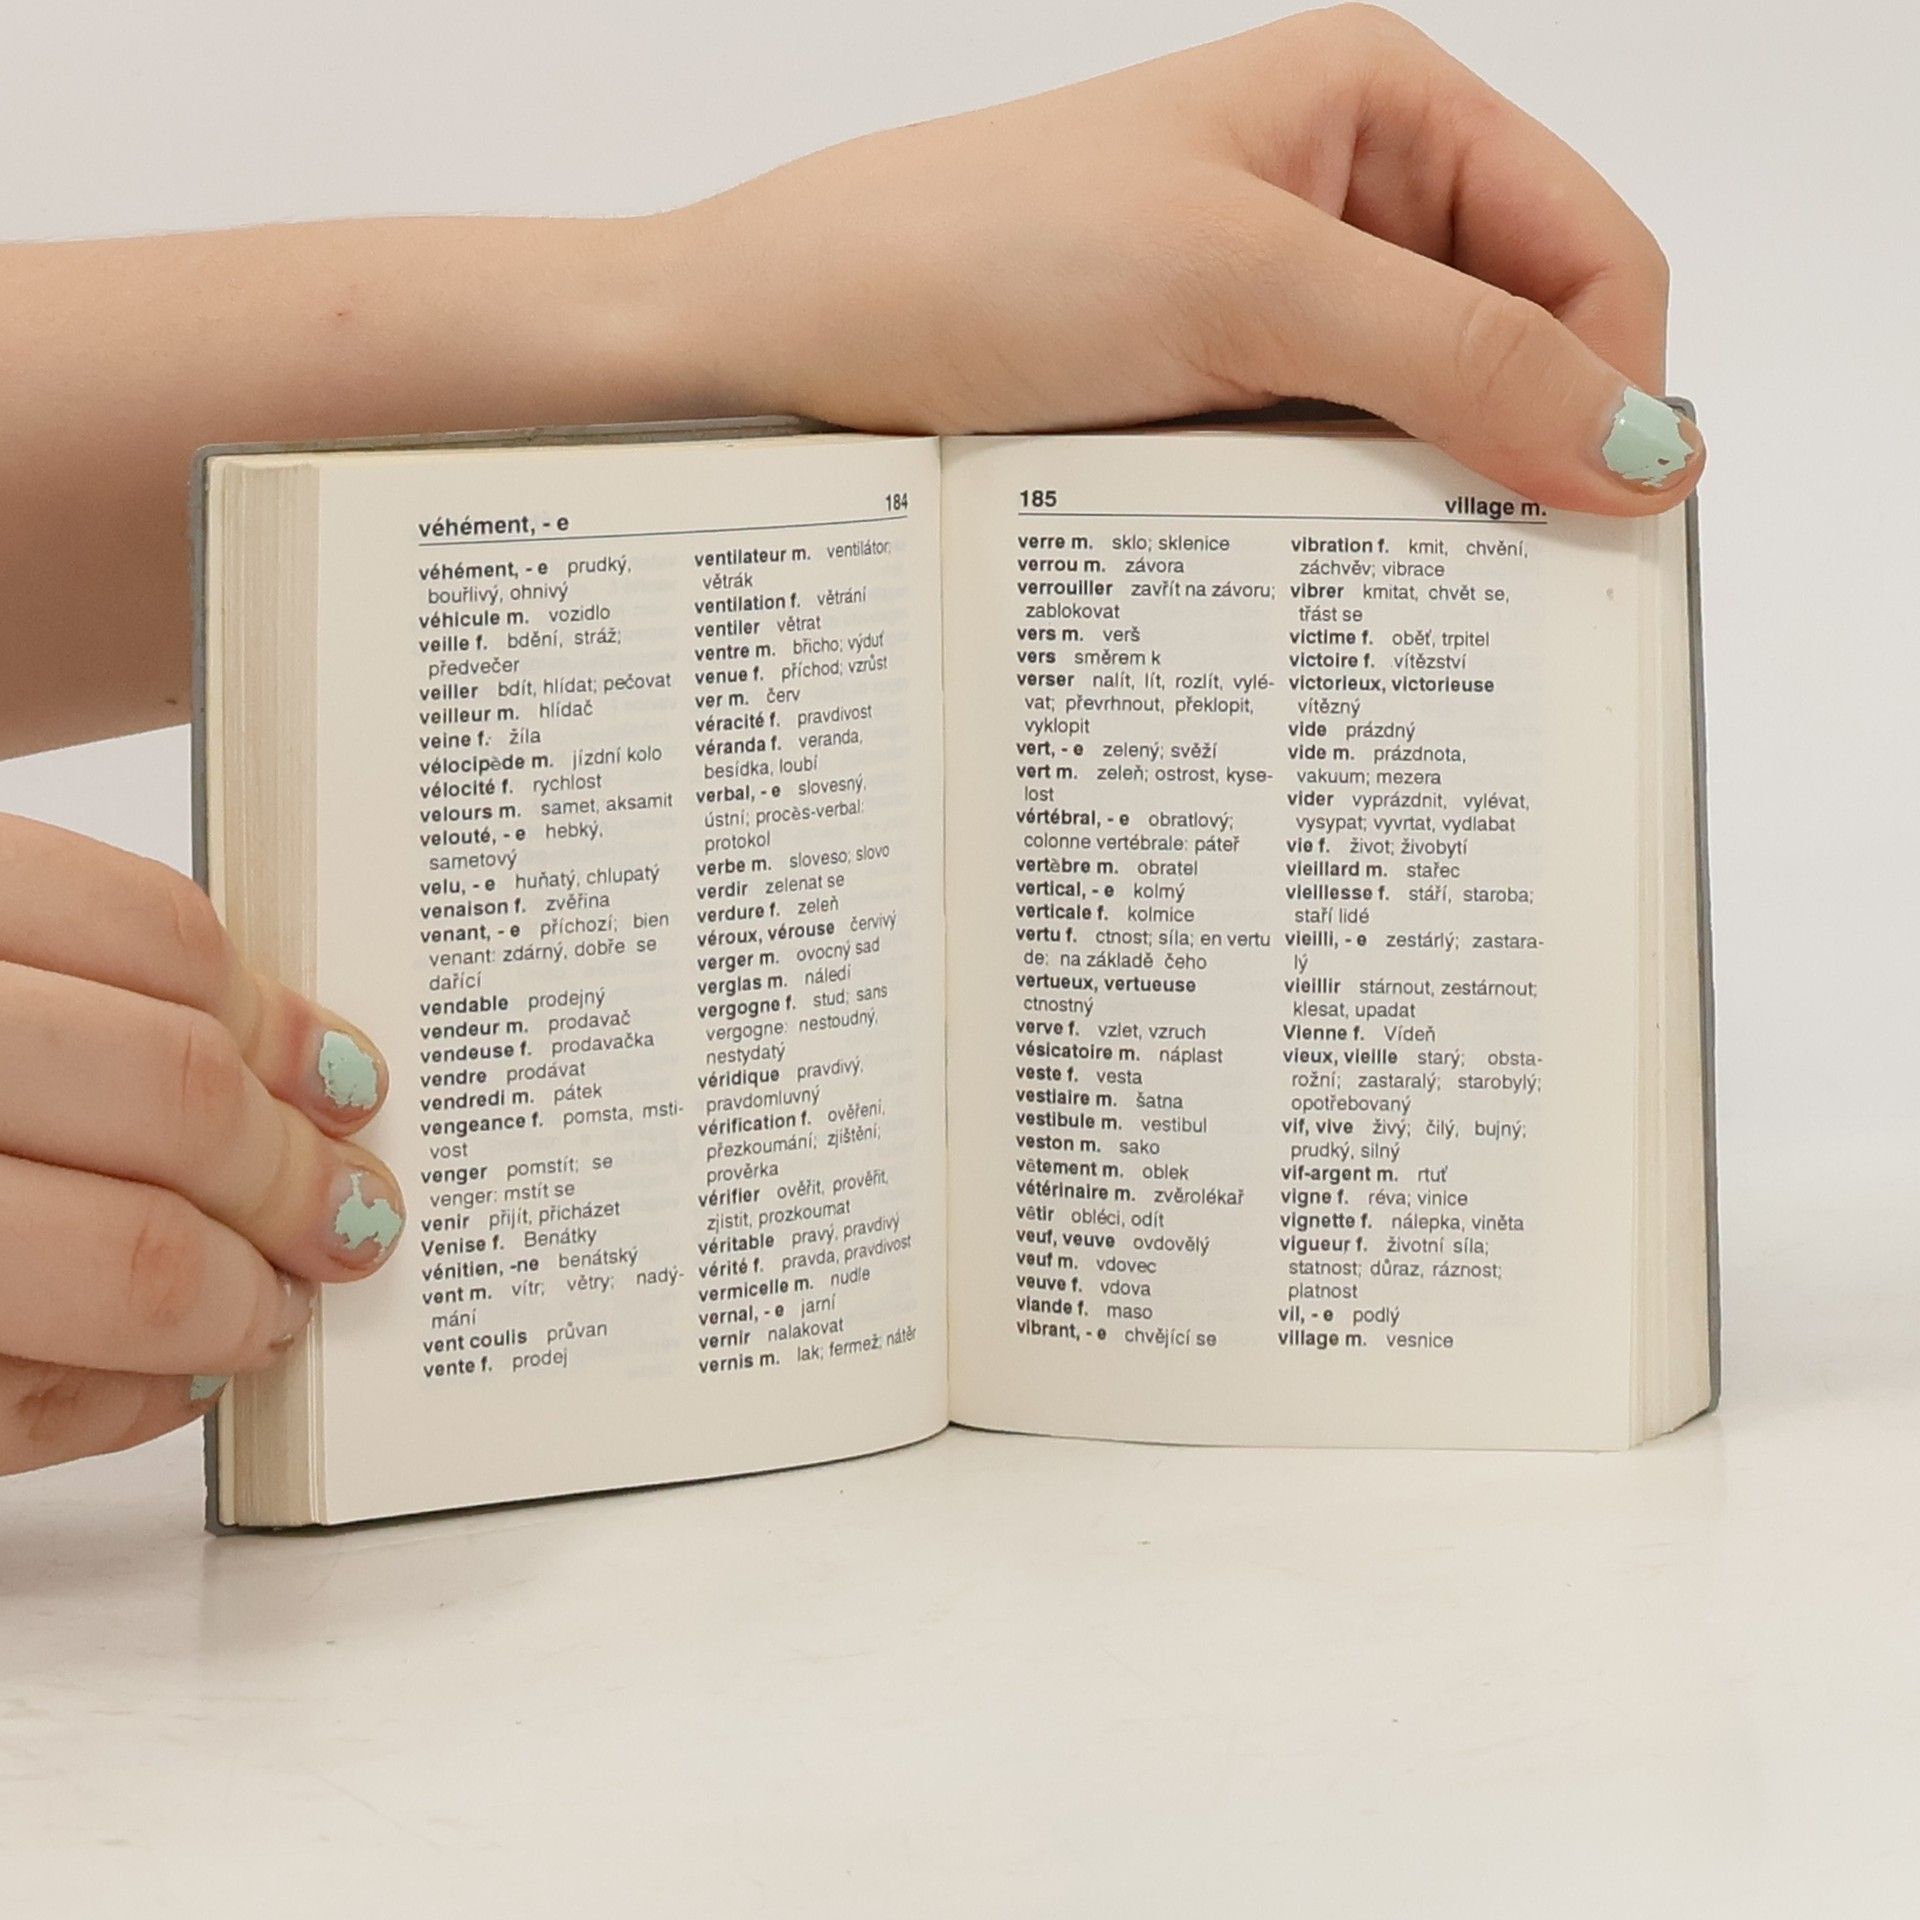 véhément, - e 184
véhément, - e prudký,
bouřlivý, ohnivý
véhicule m. vozidlo
veille f. bdění, stráž;
předvečer
veiller bdít, hlídat; pečovat
veilleur m. hlídač
veine f. žíla
vélocipède m. jízdní kolo
vélocité f. rychlost
velours m. samet, aksamit
velouté, - e hebký,
sametový
velu, - e huňatý, chlupatý
venaison f. zvěřina
venant, - e příchozí; bien
venant: zdárný, dobře se
dařící
vendable prodejný
vendeur m. prodavač
vendeuse f. prodavačka
vendre prodávat
vendredi m. pátek
vengeance f. pomsta, msti-
vost
venger pomstít; se
venger: mstít se
venir přijít, přicházet
Venise f. Benátky
vénitien, -ne benátský
vent m. vítr; větry; nadý-
mání
vent coulis průvan
vente f. prodej
ventilateur m. ventilátor;
větrák
ventilation f. větrání
ventiler větrat
ventre m. břicho; výduť
venue f. příchod; vzrůst
ver m. červ
véracité f. pravdivost
véranda f. veranda,
besídka, loubí
verbal, - e slovesný,
ústní; procès-verbal:
protokol
verbe m. sloveso; slovo
verdir zelenat se
verdure f. zeleň
véroux, vérouse červivý
verger m. ovocný sad
verglas m. náledí
vergogne f. stud; sans
vergogne: nestoudný,
nestydatý
véridique pravdivý,
pravdomluvný
vérification f. ověření,
přezkoumání; zjištění;
prověrka
vérifier ověřit, prověřit,
zjistit, prozkoumat
véritable pravý, pravdivý
vérité f. pravda, pravdivost
vermicelle m. nudle
vernal, - e jarní
vernir nalakovat
vernis m. lak; fermež; nátěr
185 village m.
verre m. sklo; sklenice
verrou m. závora
verrouiller zavřít na závoru;
zablokovat
vers m. verš
vers směrem k
verser nalít, lít, rozlít, vylé-
vat; převrhnout, překlopit,
vyklopit
vert, - e zelený; svěží
vert m. zeleň; ostrost, kyse-
lost
vértébral, - e obratlový;
colonne vertébrale: páteř
vertèbre m. obratel
vertical, - e kolmý
verticale f. kolmice
vertu f. ctnost; síla; en vertu
de: na základě čeho
vertueux, vertueuse
ctnostný
verve f. vzlet, vzruch
vésicatoire m. náplast
veste f. vesta
vestiaire m. šatna
vestibule m. vestibul
veston m. sako
vêtement m. oblek
vétérinaire m. zvěrolékař
vêtir obléci, odít
veuf, veuve ovdovělý
veuf m. vdovec
veuve f. vdova
viande f. maso
vibrant, - e chvějící se
vibration f. kmit, chvění,
záchvěv; vibrace
vibrer kmitat, chvět se,
třást se
victime f. oběť, trpitel
victoire f. vítězství
victorieux, victorieuse
vítězný
vide prázdný
vide m. prázdnota,
vakuum; mezera
vider vyprázdnit, vylévat,
vysypat; vyvrtat, vydlabat
vie f. život; živobytí
vieillard m. stařec
vieillesse f. stáří, staroba;
staří lidé
vieilli, - e zestárlý; zastara-
lý
vieillir stárnout, zestárnout;
klesat, upadat
Vienne f. Vídeň
vieux, vieille starý; obsta-
rožní; zastaralý; starobylý;
opotřebovaný
vif, vive živý; čilý, bujný;
prudký, silný
vif-argent m. rtuť
vigne f. réva; vinice
vignette f. nálepka, viněta
vigueur f. životní síla;
statnost; důraz, ráznost;
platnost
vil, - e podlý
village m. vesnice